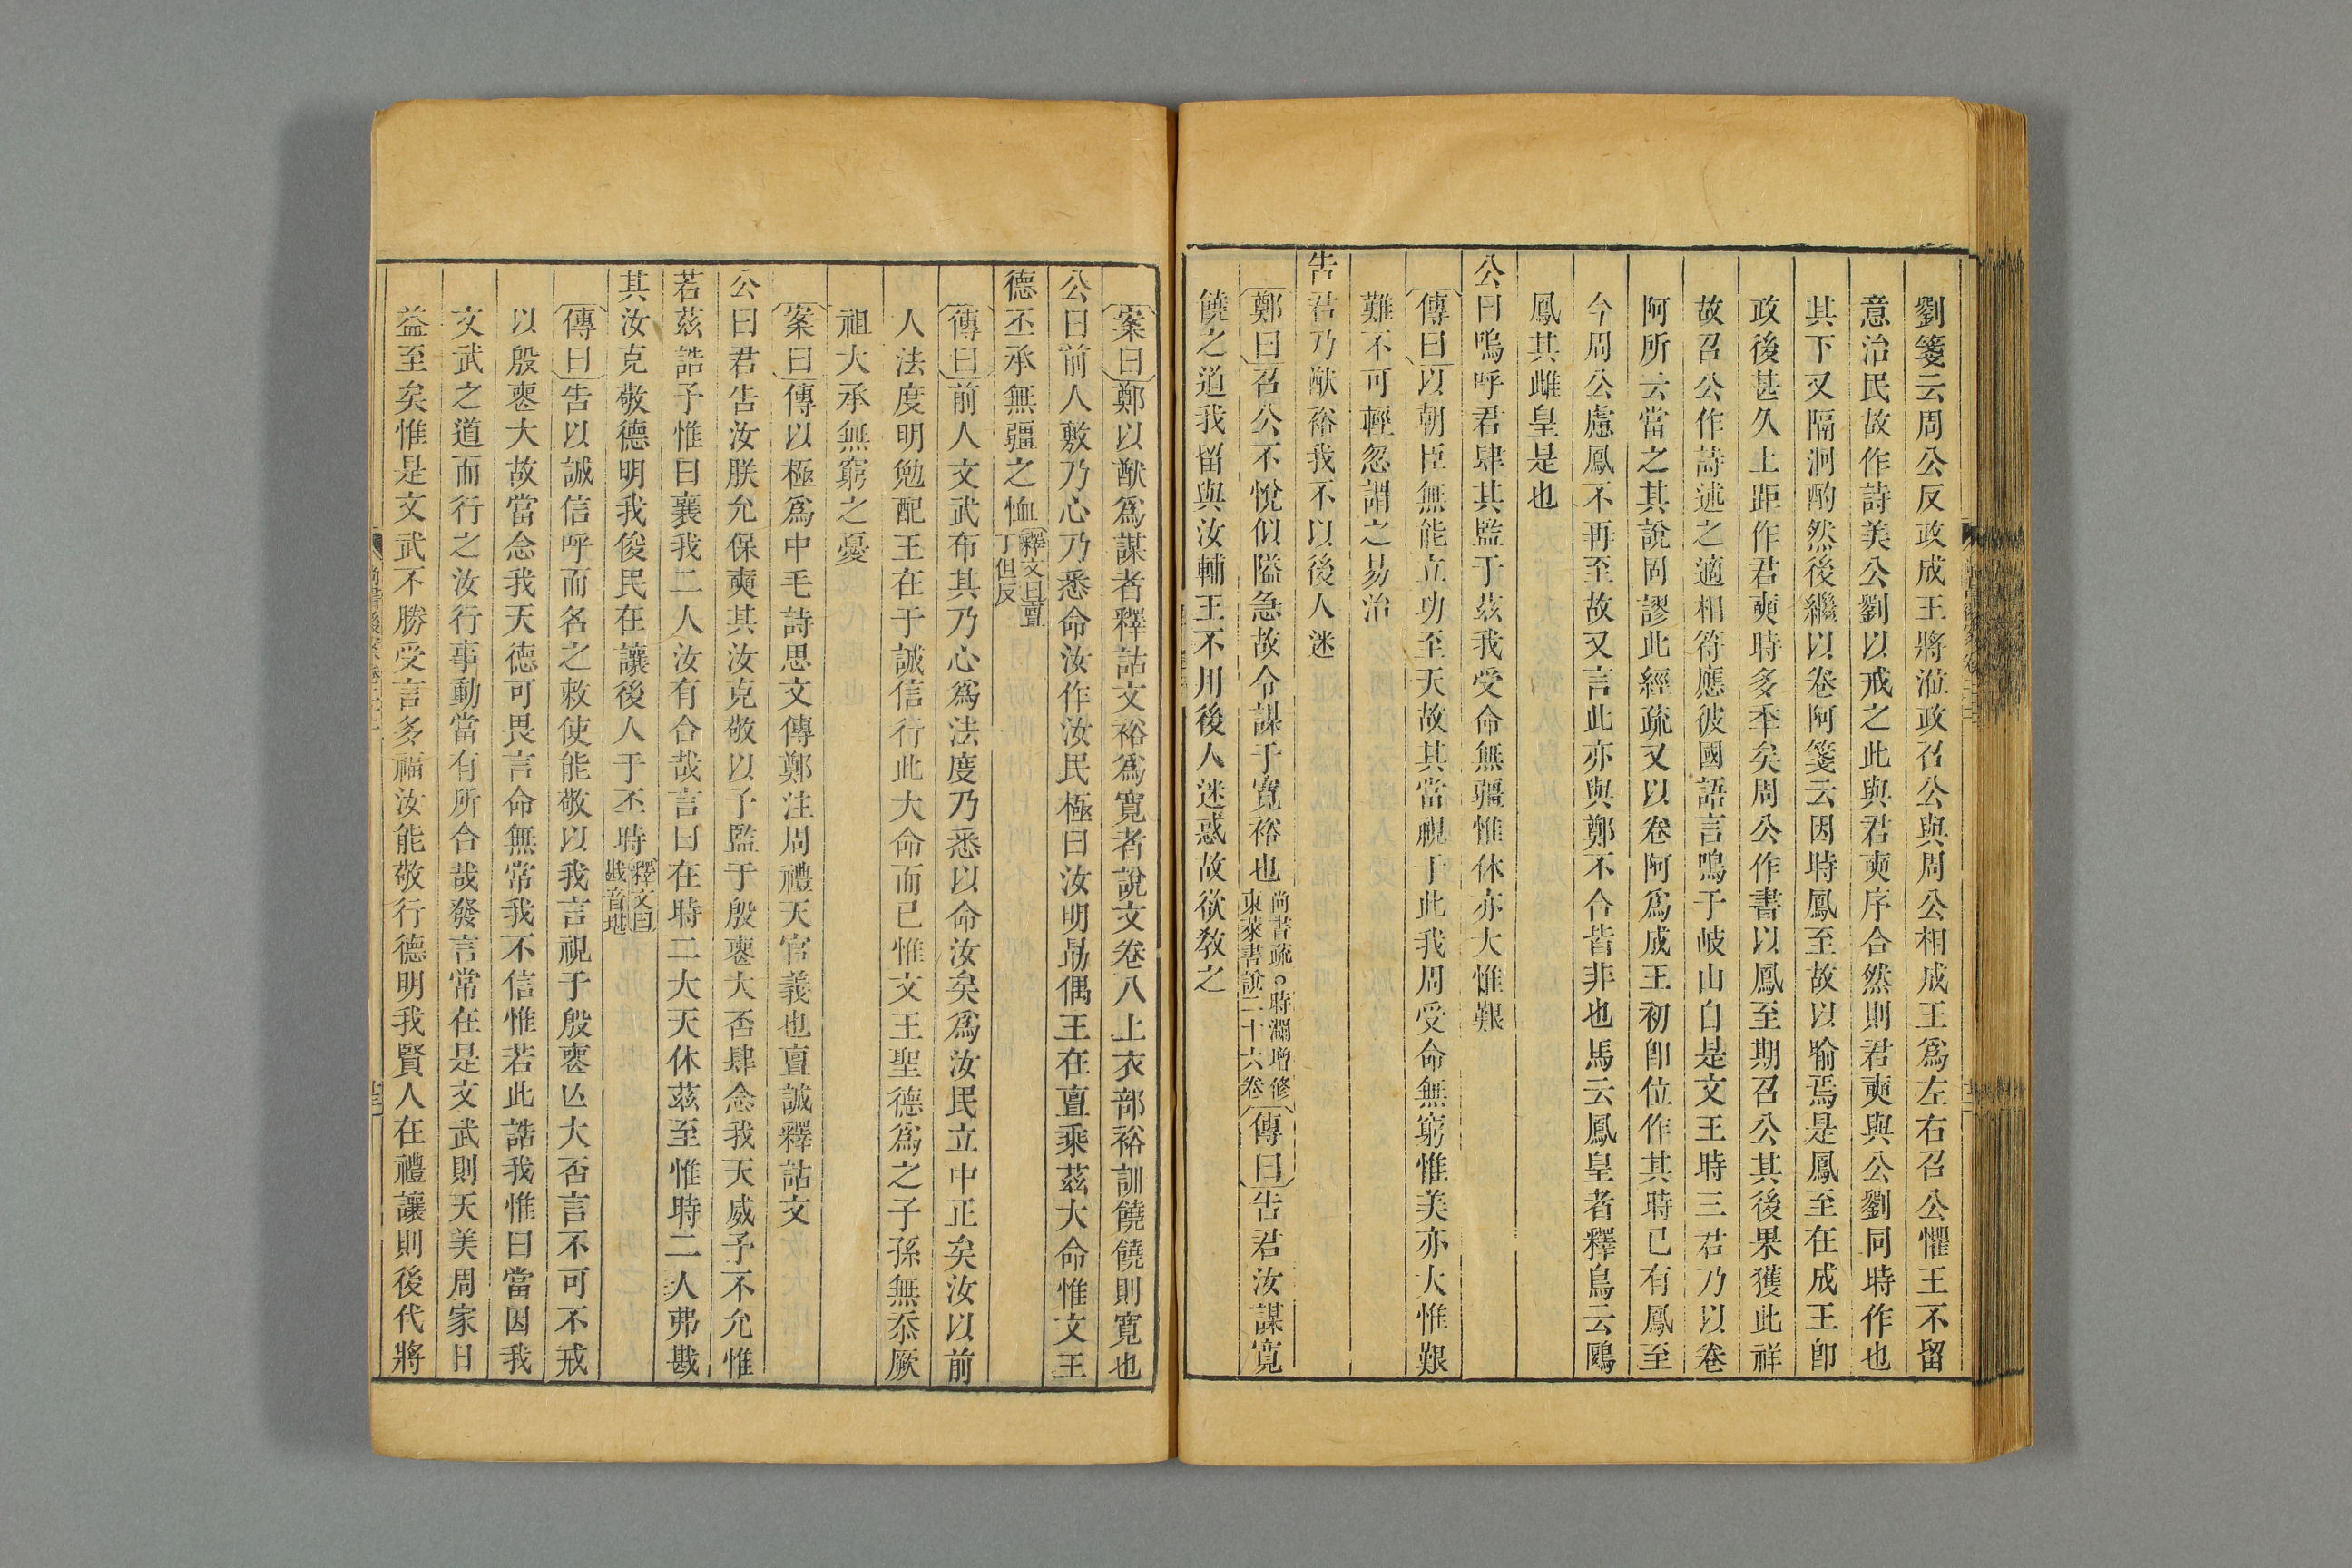 劉箋云周公反政成王將涖政召公與周公相成王爲左右召公懼王不留
意治民故作詩美公劉以戒之此與君奭序合然則君奭與公劉同時作也
其下又隔泂酌然後繼以卷阿箋云因時鳳至故以喻焉是鳳至在成王卽
政後甚久上距作君奭時多秊矣周公作書以鳳至期召公其後果獲此祥
故召公作詩述之適相符應彼國語言鳴于岐山自是文王時三君乃以卷
阿所云當之其說固謬此經疏又以卷阿爲成王初卽位作其時已有鳳至
今周公慮鳳不再至故又言此亦與鄭不合皆非也馬云鳳皇者釋鳥云鶠
鳳其雌皇是也
公曰嗚呼君肆其監于茲我受命無疆惟休亦大惟艱
傳曰以朝臣無能立功至天故其當視于此我周受命無窮惟美亦大惟艱
難不可輕忽謂之易治
告君乃猷裕我不以後人迷
鄭曰召公不悅似隘急故令謀于寬裕也尚書疏○時瀾增修東萊書說二十六卷傳曰告君汝謀寬
饒之道我留與汝輔王不用後人迷惑故欲敎之
案曰鄭以猷爲謀者釋詁文裕爲寬者說文卷八上衣部裕訓饒饒則寬也
公曰前人敷乃心乃悉命汝作汝民極曰汝明勗偶王在亶乘茲大命惟文王
德丕承無疆之恤釋文曰亶丁但反
傳曰前人文武布其乃心爲法度乃悉以命汝矣爲汝民立中正矣汝以前
人法度明勉配王在于誠信行此大命而已惟文王聖德爲之子孫無忝厥
祖大承無窮之憂
案曰傳以極爲中毛詩思文傳鄭注周禮天官義也亶誠釋詁文
公曰君告汝朕允保奭其汝克敬以予監于殷喪大否肆念我天威予不允惟
若茲誥予惟曰襄我二人汝有合哉言曰在時二人天休茲至惟時二人弗戡
其汝克敬德明我俊民在讓後人于丕時釋文曰戡音堪
傳曰告以誠信呼而名之敕使能敬以我言視于殷喪亾大否言不可不戒
以殷喪大故當念我天德可畏言命無常我不信惟若此誥我惟曰當因我
文武之道而行之汝行事動當有所合哉發言常在是文武則天美周家日
益至矣惟是文武不勝受言多福汝能敬行德明我賢人在禮讓則後代將